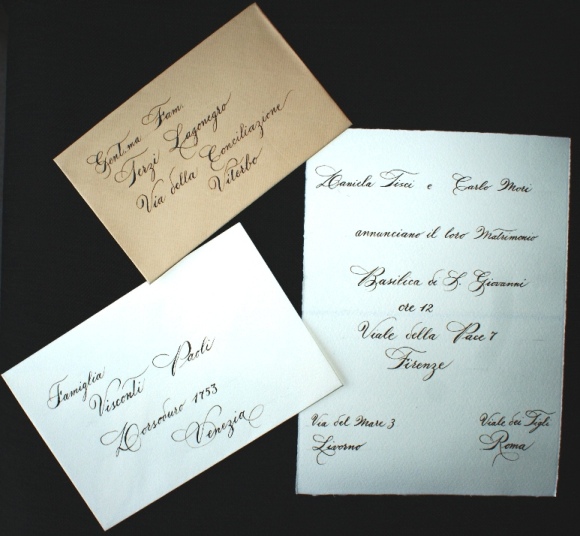 Gent.ma Fam.
Terzi Lagonegro
Via della Conciliazione
Viterbo
Daniela Tisci e Carlo Mori
annunciano il loro Matrimonio
Basilica di S. Giovanni
ore 12
Viale della Pace 7
Firenze
Via del Mare 3
Livorno
Viale dei Tigli
Roma
Famiglia
Visconti Paoli
Dorsoduro 1753
Venezia